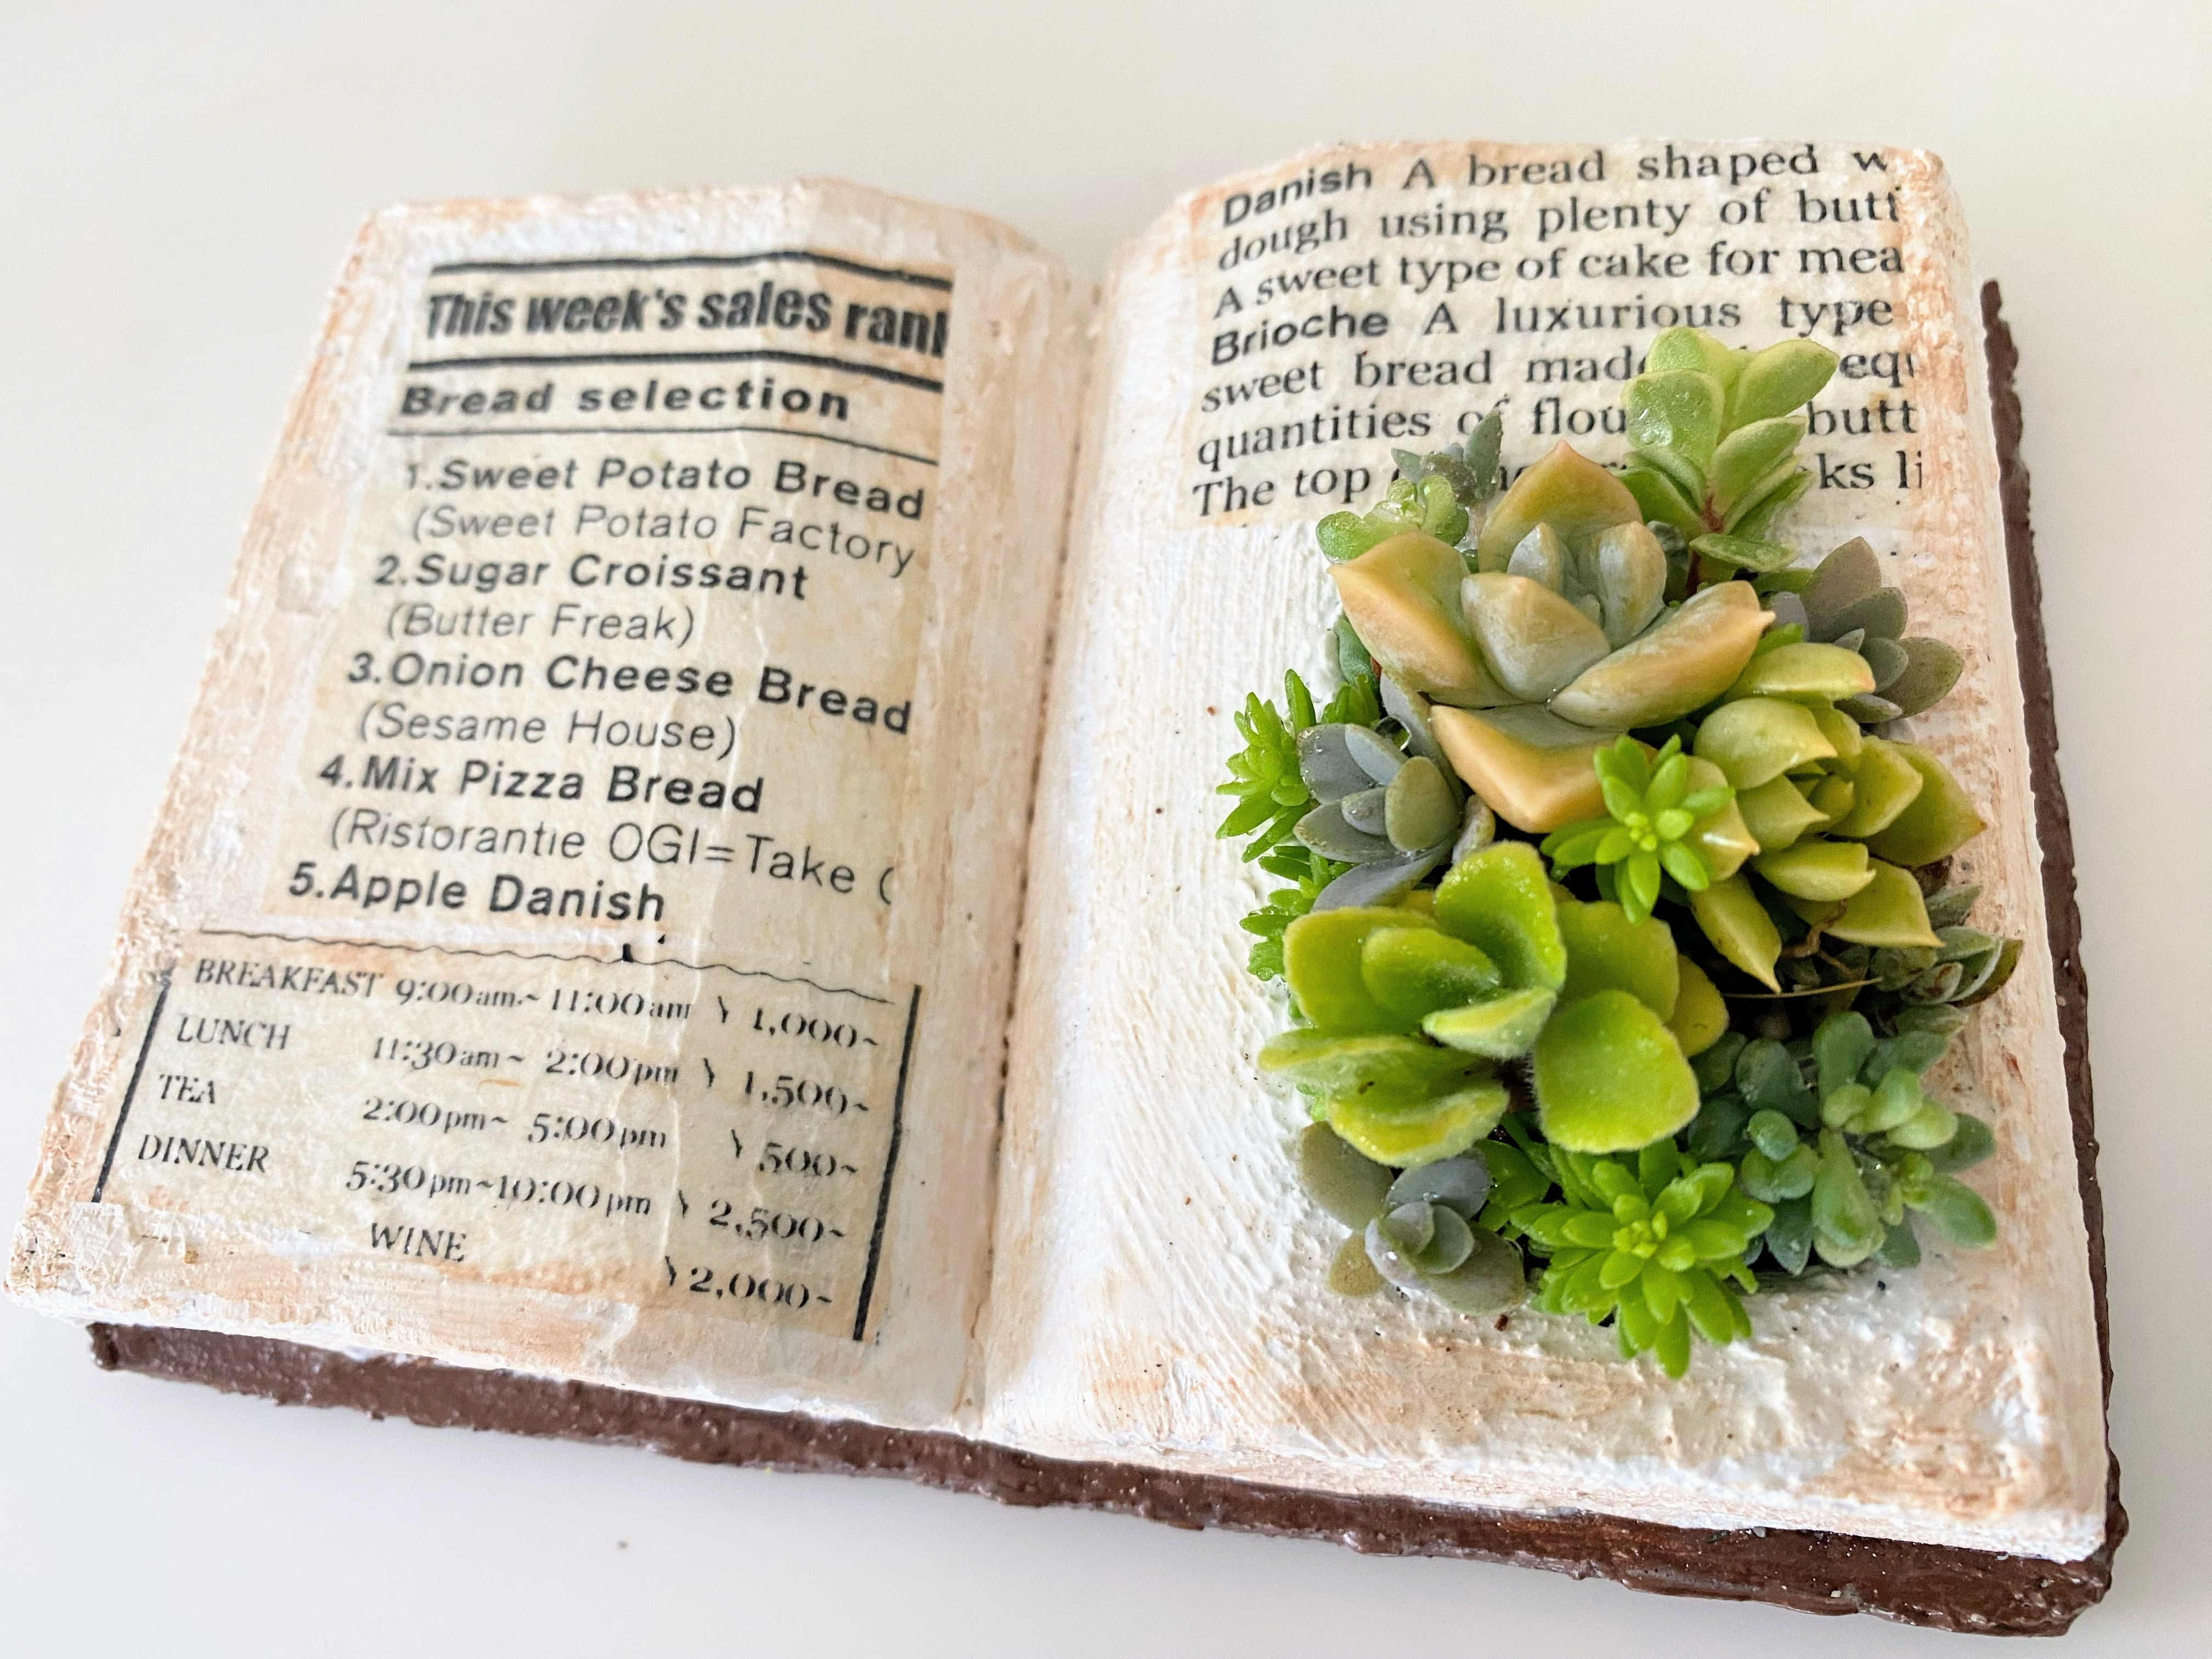 This week's sales
Bread selection
1.Sweet Potato Bread
(Sweet Potato Factory
2.Sugar Croissant
(Butter Freak)
3.Onion Cheese Bread
(Sesame House)
4.Mix Pizza Bread
(Ristorantie OGI=Take (
5.Apple Danish
BREAKFAST 9:00am~11:00am \ 1,000~
LUNCH 11:30am~ 2:00pm \ 1,500~
TEA 2:00pm~ 5:00pm \ 500~
DINNER 5:30pm~10:00pm \ 2,500~
WINE \2,000~
Danish A bread shaped w
dough using plenty of butt
A sweet type of cake for mea
Brioche A luxurious type
sweet bread made equ
quantities of flou butt
The top ks li